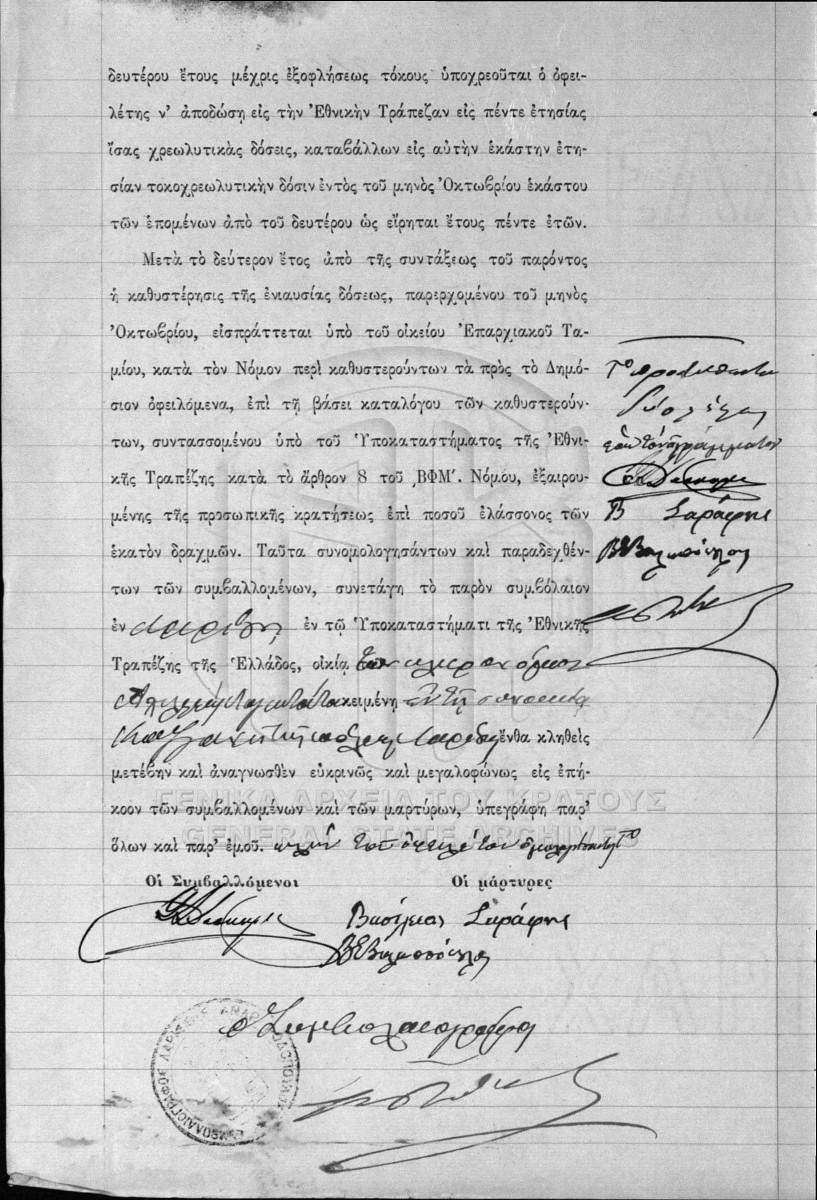 δευτέρου ἔτους μέχρις ἐξοφλήσεως τόκους ὑποχρεοῦται ὁ ὀφει-
λέτης ν’ ἀποδώσῃ εἰς τὴν Ἐθνικὴν Τράπεζαν εἰς πέντε ἐτησίας
ἴσας χρεωλυτικὰς δόσεις, καταβάλλων εἰς αὐτὴν ἑκάστην ἐτη-
σίαν τοκοχρεωλυτικὴν δόσιν ἐντὸς τοῦ μηνὸς Ὀκτωβρίου ἑκάστου
τῶν ἑπομένων ἀπὸ τοῦ δευτέρου ὡς εἴρηται ἔτους πέντε ἐτῶν.
Μετὰ τὸ δεύτερον ἔτος ἀπὸ τῆς συντάξεως τοῦ παρόντος
ἡ καθυστέρησις τῆς ἐνιαυσίας δόσεως, παρερχομένου τοῦ μηνὸς
Ὀκτωβρίου, εἰσπράττεται ὑπὸ τοῦ οἰκείου Ἐπαρχιακοῦ Τα-
μίου, κατὰ τὸν Νόμον περὶ καθυστερούντων τὰ πρὸς τὸ Δημό-
σιον ὀφειλόμενα, ἐπὶ τῇ βάσει καταλόγου τῶν καθυστερούν-
των, συντασσομένου ὑπὸ τοῦ Ὑποκαταστήματος τῆς Ἐθνι-
κῆς Τραπέζης κατὰ τὸ ἄρθρον 8 τοῦ ͵ΒΦΜ΄. Νόμου, ἐξαιρου-
μένης τῆς προσωπικῆς κρατήσεως ἐπὶ ποσοῦ ἐλάσσονος τῶν
ἑκατὸν δραχμῶν. Ταῦτα συνομολογησάντων καὶ παραδεχθέν-
των τῶν συμβαλλομένων, συνετάγη τὸ παρὸν συμβόλαιον
ἐν Λαρίσῃ ἐν τῷ Ὑποκαταστήματι τῆς Ἐθνικῆς
Τραπέζης τῆς Ἑλλάδος, οἰκίᾳ τῶν κληρονόμων
κειμένῃ ἐν τῇ συνοικίᾳ
ἔνθα κληθεὶς
μετέβην καὶ ἀναγνωσθὲν εὐκρινῶς καὶ μεγαλοφώνως εἰς ἐπή-
κοον τῶν συμβαλλομένων καὶ τῶν μαρτύρων, ὑπεγράφη παρ’
ὅλων καὶ παρ’ ἐμοῦ. πλὴν τοῦ ὀφειλέτου
Β Σαράφης
ΓΕΝΙΚΑ ΑΡΧΕΙΑ ΤΟΥ ΚΡΑΤΟΥΣ
GENERAL STATE ARCHIVES
Οἱ Συμβαλλόμενοι Οἱ μάρτυρες
Βασίλειος Σαράφης
ὁ Συμβολαιογράφος